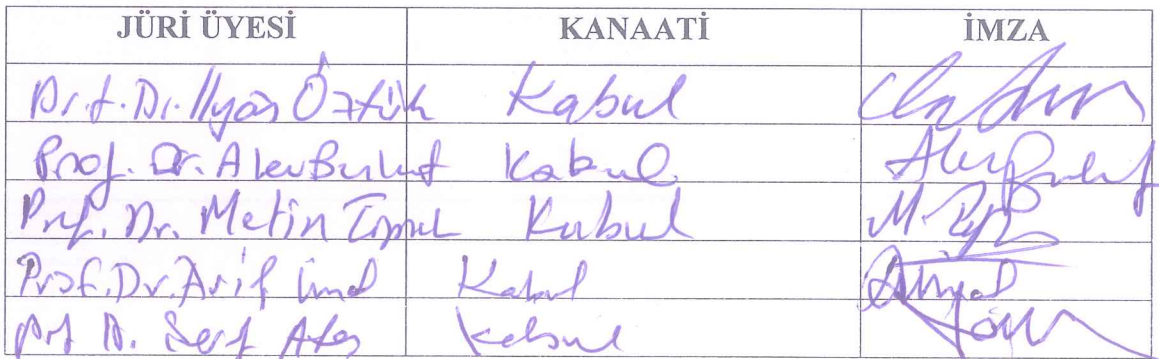 JÜRİ ÜYESİ KANAATİ İMZA
Prof. Dr. İlyas Öztürk Kabul
Prof. Dr. Alev Bulut Kabul
Prof. Dr. Metin Toprak Kabul
Prof. Dr. Arif Ünal Kabul
Prof. Dr. Şeref Ateş Kabul